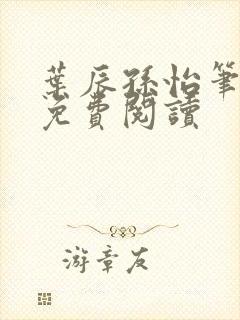 葉辰孫怡筆
免費閱讀
游章友